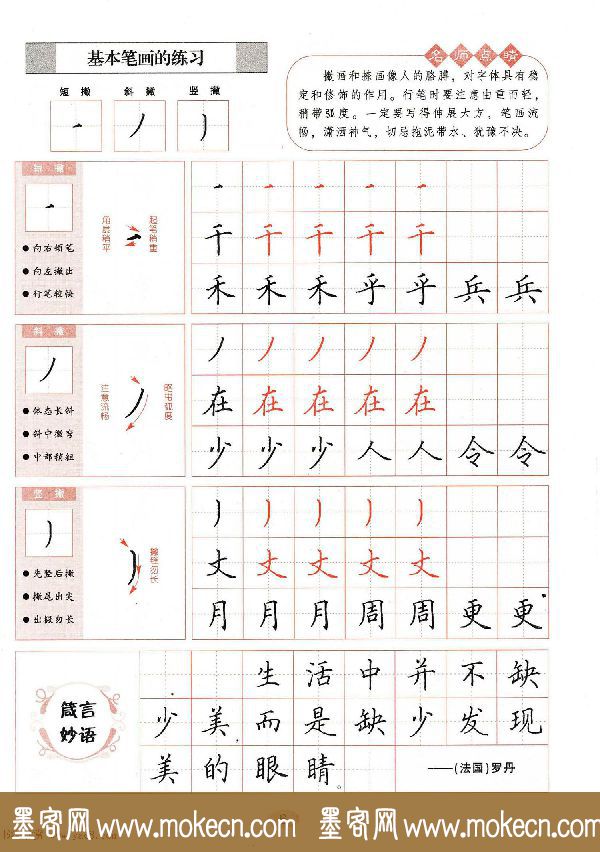 基本笔画的练习
名师点睛
短撇 斜撇 竖撇
撇画和捺画像人的胳膊，对字体具有稳
定和修饰的作用。行笔时要注意由重而轻，
稍带弧度。一定要写得伸展大方，笔画流
畅，潇洒神气，切忌拖泥带水、犹豫不决。
短撇
向右顿笔
向左撇出
行笔轻快
起笔稍重
角度稍平
千千千千千
禾禾禾乎乎兵兵
斜撇
体态长斜
斜中微弯
中部稍粗
略带弧度
注意流畅
在在在在在
少少少人人令令
竖撇
先竖后撇
撇尾出尖
出撇勿长
撇锋勿长
丈丈丈丈丈
月月月周周更更
箴言
妙语
生活中并不缺
少美而是缺少发现
美的眼睛。
——(法国)罗丹
墨客网www.mokecn.com 墨客网www.mokecn.com